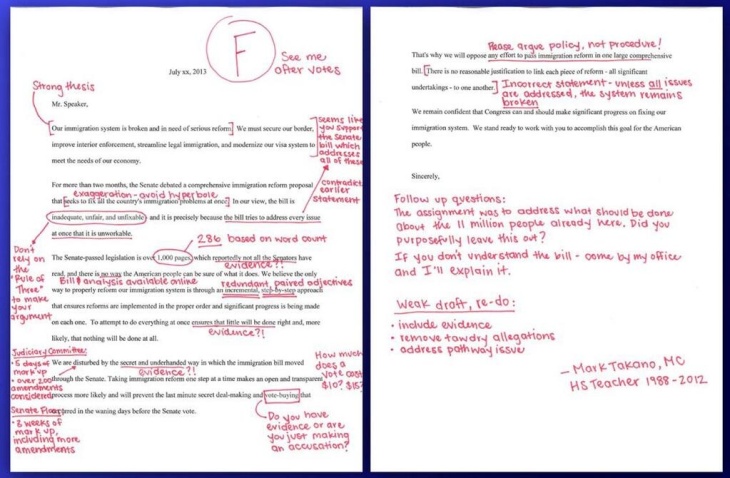 F
See me
after votes
July xx, 2013
Strong thesis
Mr. Speaker,
Our immigration system is broken and in need of serious reform. We must secure our border,
improve interior enforcement, streamline legal immigration, and modernize our visa system to
meet the needs of our economy.
seems like
you support
the Senate
bill which
addresses
all of these
For more than two months, the Senate debated a comprehensive immigration reform proposal
exaggeration - avoid hyperbole
that seeks to fix all the country's immigration problems at once. In our view, the bill is
inadequate, unfair, and unfixable and it is precisely because the bill tries to address every issue
at once that it is unworkable.
contradicts
earlier
statement
286 based on word count
Don't
rely on
the
"Rule of
Three"
to make
your
argument
The Senate-passed legislation is over 1,000 pages, which reportedly not all the Senators have
evidence?!
read, and there is no way the American people can be sure of what it does. We believe the only
Bill & analysis available online
redundant, paired adjectives
way to properly reform our immigration system is through an incremental, step-by-step approach
that ensures reforms are implemented in the proper order and significant progress is being made
on each one. To attempt to do everything at once ensures that little will be done right and, more
evidence?!
likely, that nothing will be done at all.
Judiciary Committee:
• 5 days of
mark up
• over 200
amendments
considered
Senate Floor:
• 3 weeks of
mark up,
including more
amendments
We are disturbed by the secret and underhanded way in which the immigration bill moved
evidence?!
through the Senate. Taking immigration reform one step at a time makes an open and transparent
process more likely and will prevent the last minute secret deal-making and vote-buying that
occurred in the waning days before the Senate vote.
How much
does a
vote cost
$10? $15?
Do you have
evidence or are
you just making
an accusation?
Please argue policy, not procedure!
That's why we will oppose any effort to pass immigration reform in one large comprehensive
bill. There is no reasonable justification to link each piece of reform - all significant
undertakings - to one another.
Incorrect statement - unless all issues
are addressed, the system remains
broken
We remain confident that Congress can and should make significant progress on fixing our
immigration system. We stand ready to work with you to accomplish this goal for the American
people.
Sincerely,
Follow up questions:
The assignment was to address what should be done
about the 11 million people already here. Did you
purposefully leave this out?
If you don't understand the bill - come by my office
and I'll explain it.
Weak draft, re-do:
• include evidence
• remove tawdry allegations
• address pathway issue
— Mark Takano, MC
HS Teacher 1988-2012